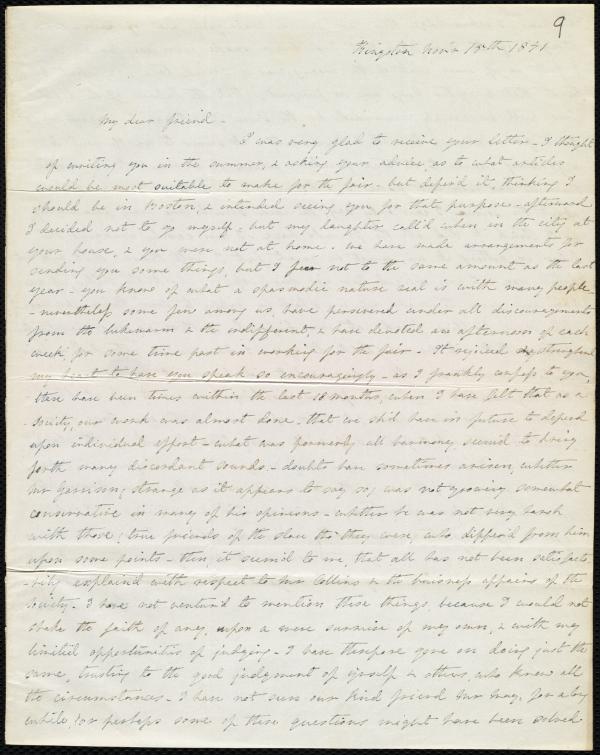 9
Kingston Nov'r 15th 1841
My dear friend -
I was very glad to receive your letter - I thought
of writing you in the summer, & asking your advice as to what articles
would be most suitable to make for the fair - but defer'd it, thinking I
should be in Boston, & intended seeing you for that purpose - afterward
I decided not to go myself - but my daughter call'd when in the city at
your house, & you were not at home. We have made arrangements for
sending you some things, but I fear not to the same amount as the last
year - you know of what a spasmodic nature zeal is with many people
- nevertheless some few among us, have persevered under all discouragements
from the lukewarm & the indifferent, & have devoted an afternoon of each
week for some time past in working for the fair - It rejoiced & strengthened
my heart to have you speak so encouragingly - as I frankly confess to you,
there have been times within the last 18 months, when I have felt that as a
society, our work was almost done - that we sh'd have in future to depend
upon individual effort - what was formerly all harmony seem'd to bring
forth many discordant sounds - doubts have sometimes arisen, whether
Mr Garrison, strange as it appears to say so, was not growing somewhat
conservative in many of his opinions - whether he was not very harsh
with those, true friends of the slave tho' they were, who differ'd from him
upon some points - then it seem'd to me, that all has not been satisfacto
-rily explain'd with respect to Mr Collins & the business affairs of the
society - I have not ventur'd to mention these things, because I would not
shake the faith of any, upon a mere surmise of my own, & with my
limited opportunities of judging - I have therefore gone on doing just the
same, trusting to the good judgment of yourself & others, who knew all
the circumstances - I have not seen our kind friend Mr May, for a long
while, or perhaps some of these questions might have been solved